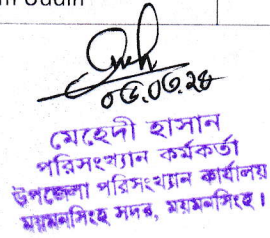 Uddin
০৬.০৩.২৪
মেহেদী হাসান
পরিসংখ্যান কর্মকর্তা
উপজেলা পরিসংখ্যান কার্যালয়
ময়মনসিংহ সদর, ময়মনসিংহ।